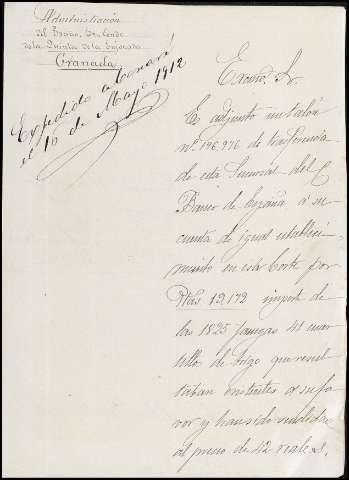 Administración
del Excmo. Sr. Conde
de la Quinta de la Enjarada
Granada
Expedido abonaré
el 10 de Mayo 1912
Excmo. Sr.
Es adjunto un talón
nº 196.976 de trasferencia
de esta Sucursal del
Banco de España a su
cuenta de igual estableci-
miento en esta Corte por
Ptas 12.172 import de
las 1825 fanegas 41 cuar-
tillos de trigo que resul-
taban existentes a su fa-
vor y han sido vendidas
al precio de 42 reales,